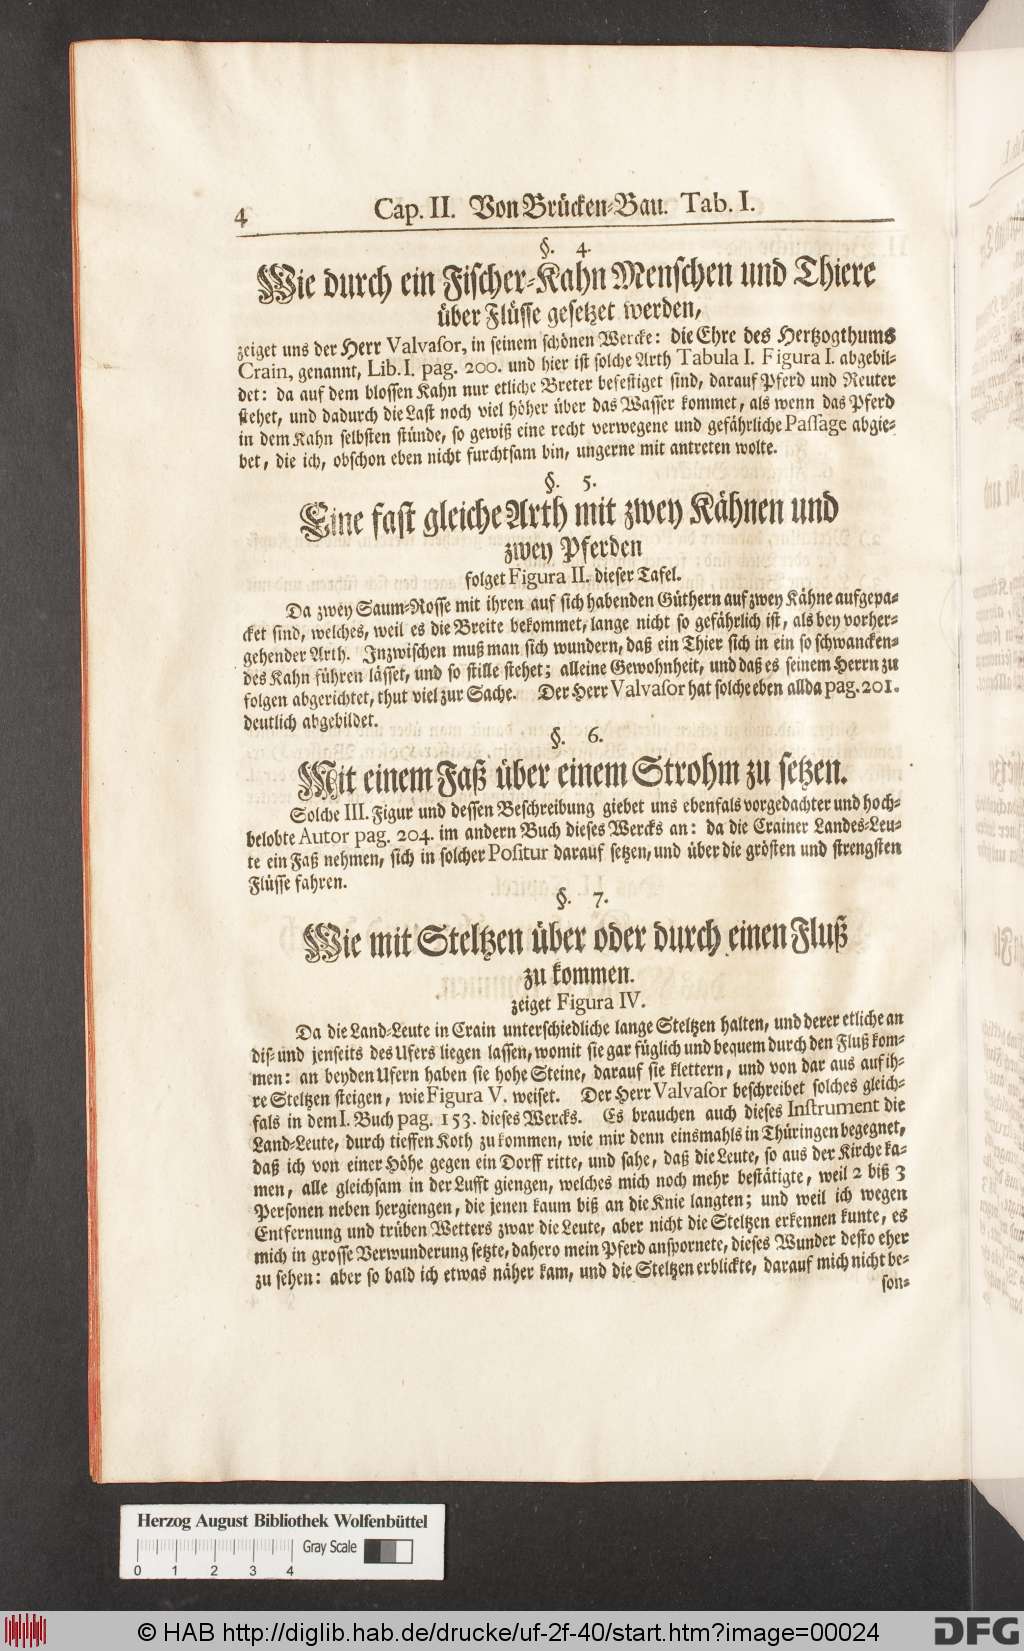 4 Cap. II. Von Brücken-Bau. Tab. I.
§. 4.
Wie durch ein Fischer-Kahn Menschen und Thiere
über Flüsse gesetzet werden,
zeiget uns der Herr Valvasor, in seinem schönen Wercke: die Ehre des Hertzogthums
Crain, genannt, Lib. I. pag. 200. und hier ist solche Arth Tabula I. Figura I. abgebil-
det: da auf dem blossen Kahn nur etliche Breter befestiget sind, darauf Pferd und Reuter
stehet, und dadurch die Last noch viel höher über das Wasser kommet, als wenn das Pferd
in dem Kahn selbsten stünde, so gewiß eine recht verwegene und gefährliche Passage abgie-
bet, die ich, obschon eben nicht furchtsam bin, ungerne mit antreten wolte.
§. 5.
Eine fast gleiche Arth mit zwey Kähnen und
zwey Pferden
folget Figura II. dieser Tafel.
Da zwey Saum-Rosse mit ihren auf sich habenden Güthern auf zwey Kähne aufgepa-
cket sind, welches, weil es die Breite bekommet, lange nicht so gefährlich ist, als bey vorher-
gehender Arth. Inzwischen muß man sich wundern, daß ein Thier sich in ein so schwancken-
des Kahn führen lässet, und so stille stehet; alleine Gewohnheit, und daß es seinem Herrn zu
folgen abgerichtet, thut viel zur Sache. Der Herr Valvasor hat solche eben allda pag. 201.
deutlich abgebildet.
§. 6.
Mit einem Faß über einem Strohm zu setzen.
Solche III. Figur und dessen Beschreibung giebet uns ebenfals vorgedachter und hoch-
belobte Autor pag. 204. im andern Buch dieses Wercks an: da die Crainer Landes-Leu-
te ein Faß nehmen, sich in solcher Positur darauf setzen, und über die grösten und strengsten
Flüsse fahren.
§. 7.
Wie mit Steltzen über oder durch einen Fluß
zu kommen.
zeiget Figura IV.
Da die Land-Leute in Crain unterschiedliche lange Steltzen halten, und derer etliche an
dis- und jenseits des Ufers liegen lassen, womit sie gar füglich und bequem durch den Fluß kom-
men: an beyden Ufern haben sie hohe Steine, darauf sie klettern, und von dar aus auf ih-
re Steltzen steigen, wie Figura V. weiset. Der Herr Valvasor beschreibet solches gleich-
fals in dem I. Buch pag. 153. dieses Wercks. Es brauchen auch dieses Instrument die
Land-Leute, durch tieffen Koth zu kommen, wie mir denn einsmahls in Thüringen begegnet,
daß ich von einer Höhe gegen ein Dorff ritte, und sahe, daß die Leute, so aus der Kirche ka-
men, alle gleichsam in der Lufft giengen, welches mich noch mehr bestätigte, weil 2 biß 3
Personen neben hergiengen, die jenen kaum biß an die Knie langten; und weil ich wegen
Entfernung und trüben Wetters zwar die Leute, aber nicht die Steltzen erkennen kunte, es
mich in grosse Verwunderung setzte, dahero mein Pferd anspornete, dieses Wunder desto eher
zu sehen: aber so bald ich etwas näher kam, und die Steltzen erblickte, darauf mich nicht be-
son-
Herzog August Bibliothek Wolfenbüttel
Gray Scale
0 1 2 3 4
© HAB http://diglib.hab.de/drucke/uf-2f-40/start.htm?image=00024
DFG